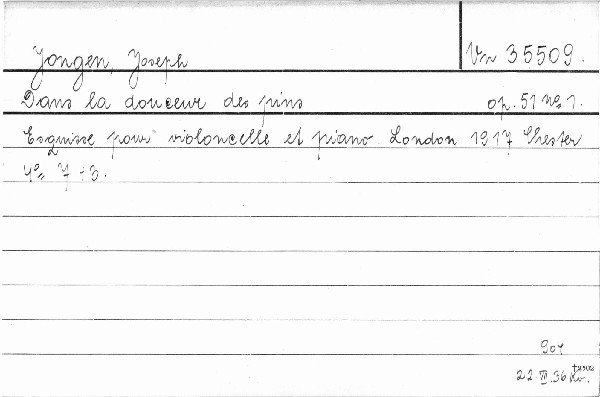 Jongen, Joseph Vn 35509.
Dans la douceur des pins op. 51 no 1.
Esquisse pour violoncelle et piano. London 1917 Chester
4° 7 + 3.
904
22. III. 36 Kv.